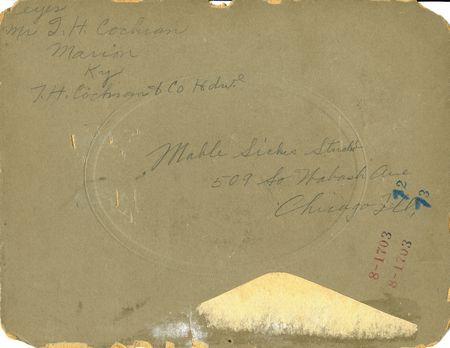 Keyes
Mr T. H. Cochran
Marion
Ky
T. H. Cochran & Co Hdwe
Mable Sickes Studio
509 So Wabash Ave
Chicago Ill.
72
73
8-1703
8-1703